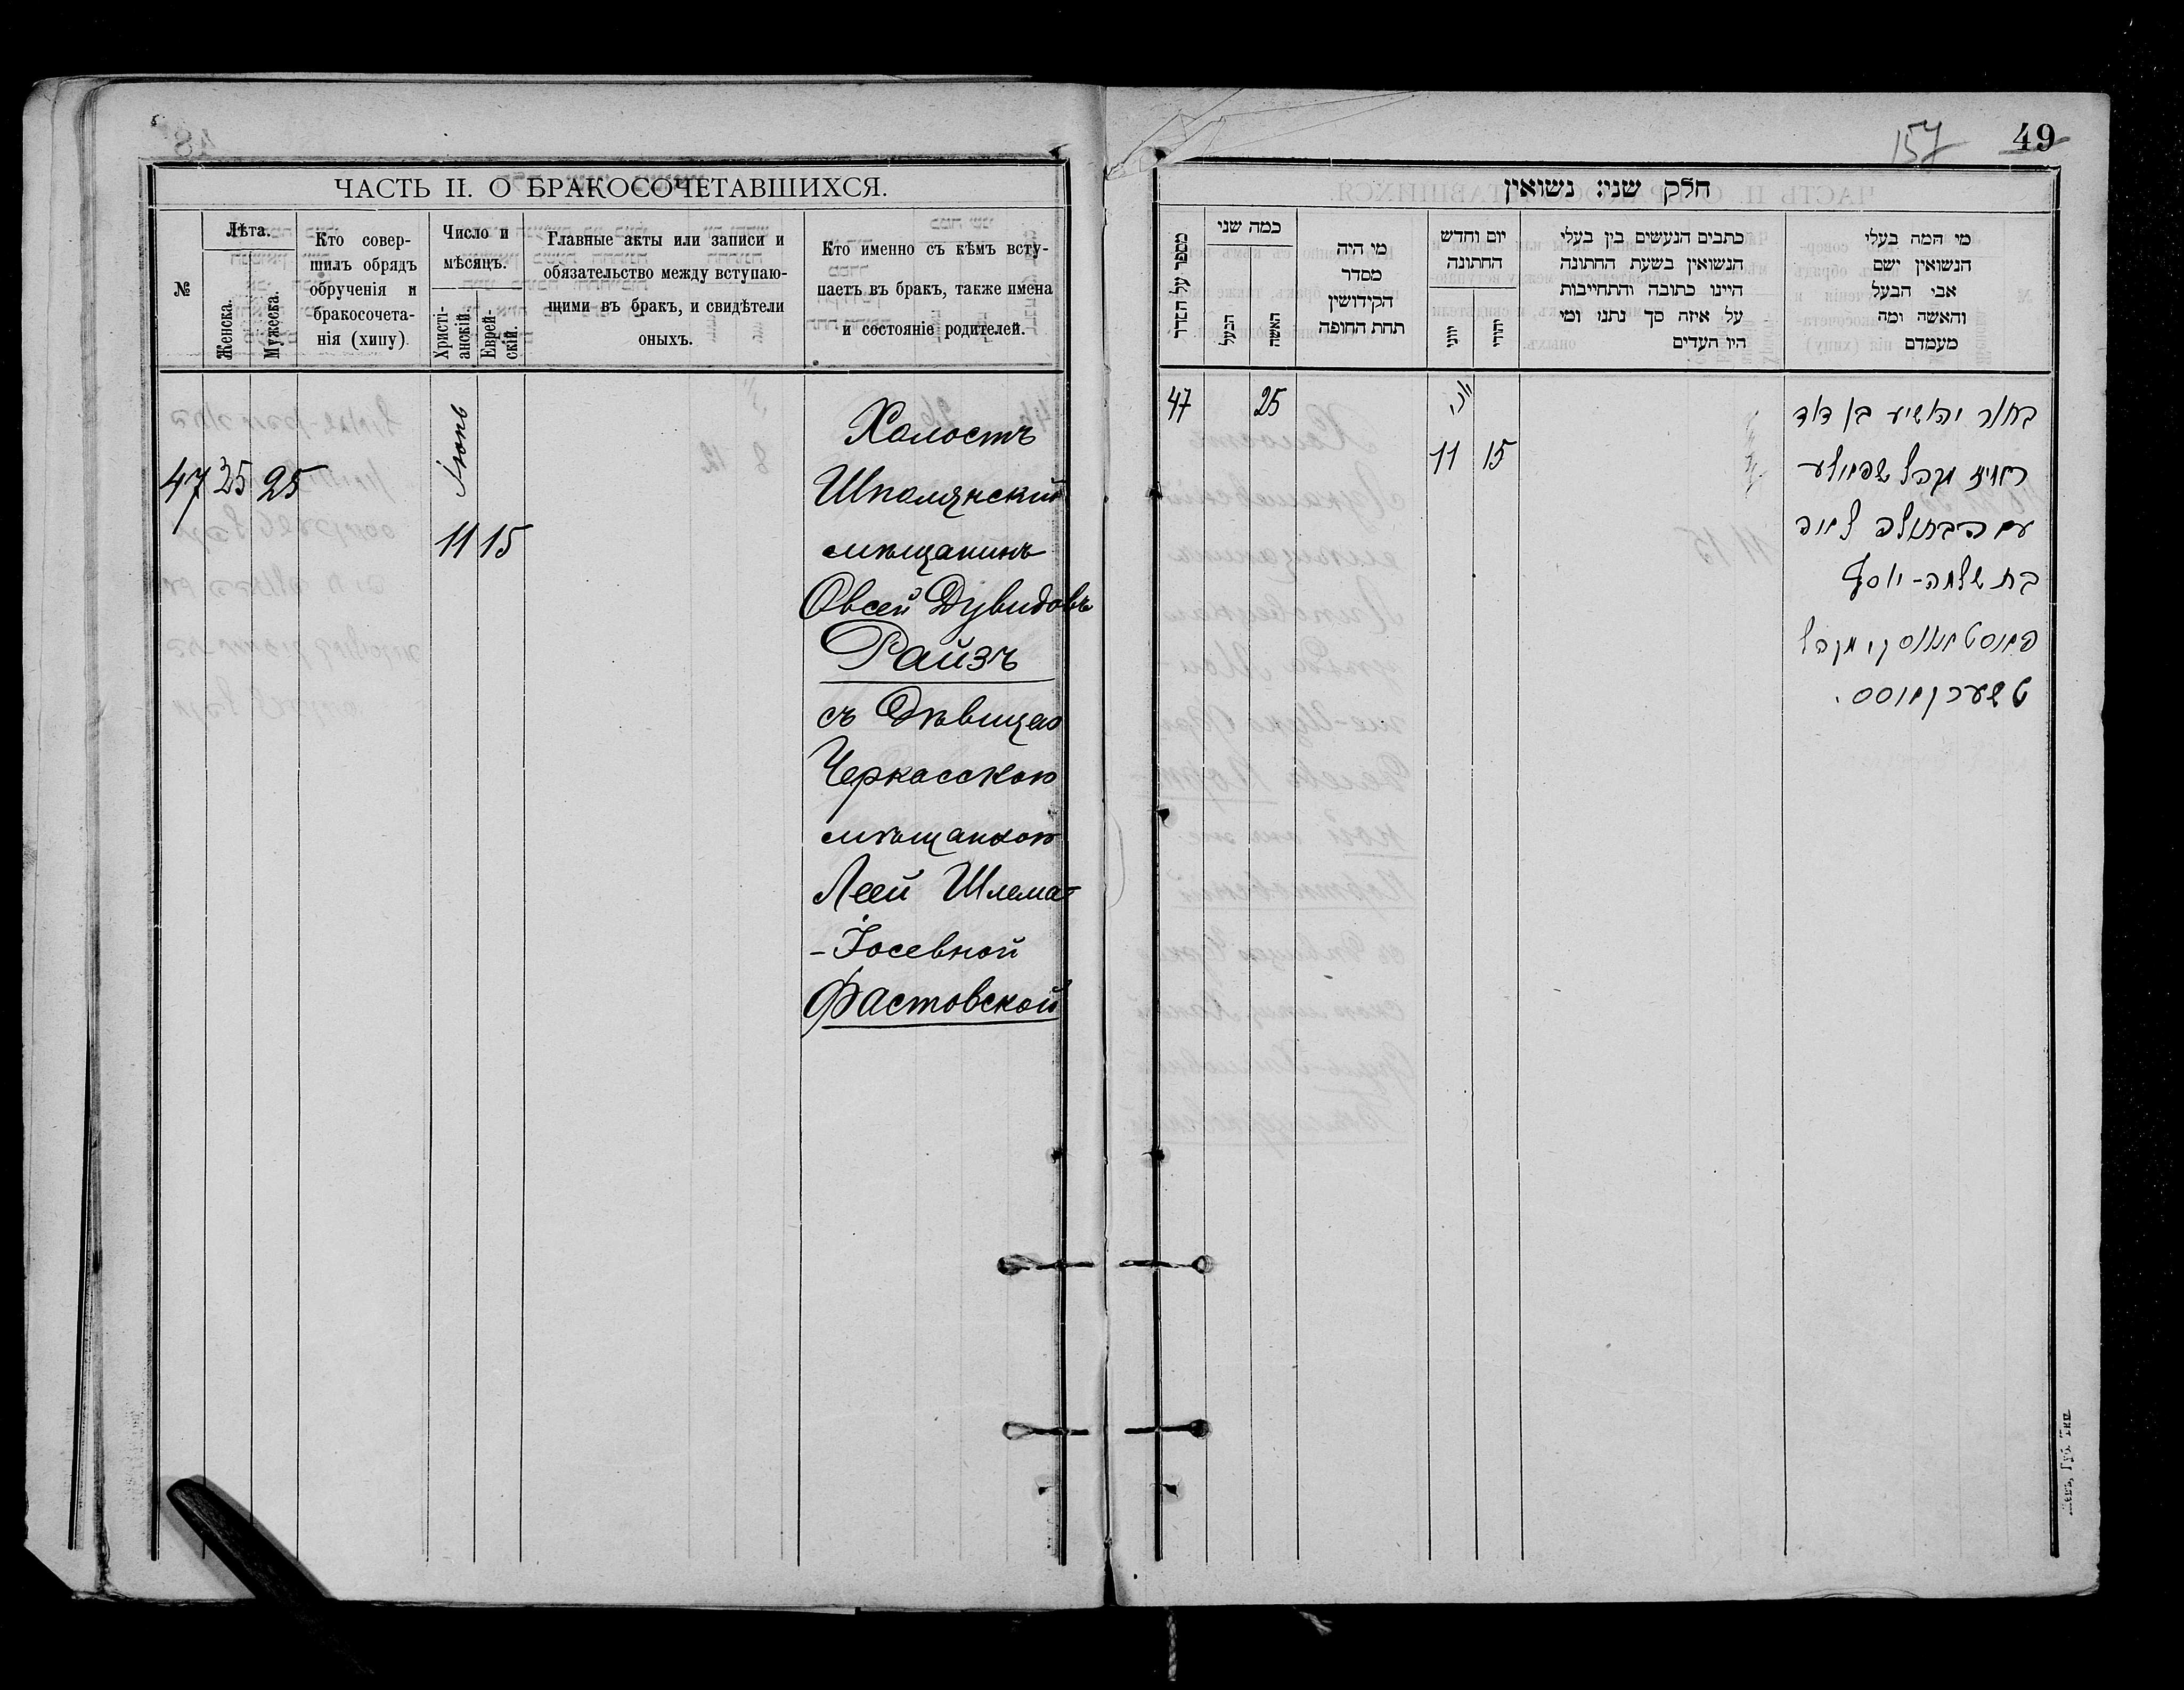 ЧАСТЬ II. О БРАКОСОЧЕТАВШИХСЯ.
№
Лѣта.
Женска.
Мужеска.
Кто совер-
шилъ обрядъ
обрученія и
бракосочета-
нія (хипу)
Число и
мѣсяцъ.
Христі-
анскій.
Еврей-
скій.
Главные акты или записи и
обязательство между вступаю-
щими въ бракъ, и свидѣтели
оныхъ.
Кто именно съ кѣмъ всту-
паетъ въ бракъ, также имена
и состояніе родителей.
47 25 25
Іюнь
11 15
Холостъ
Шполянскій
мѣщанинъ
Овсей Дувидовъ
Райзъ
съ Дѣвицею
Черкасскою
мѣщанкою
Леей Шлема-
-Іосевной
Фастовской
157
49
חלק שני: נשואין
מספר על הסדר
כמה שני
הבעל
האשה
מי היה
מסדר
הקידושין
תחת החופה
יום וחדש
החתונה
יוני
יהודי
כתבים הנעשים בין בעלי
הנשואין בשעת החתונה
היינו כתובה והתחייבות
על איזה סך נתנו ומי
היו העדים
מי המה בעלי
הנשואין ושם
אבי הבעל
והאשה ומה
מעמדם
47
25
11 15
בחור יהושיע בן דוד
רייז מקהל שפאלע
עם הבתולה לאה
בת שלמה-יוסף
פאסטאווסקי מקהל
טשערקאסס.